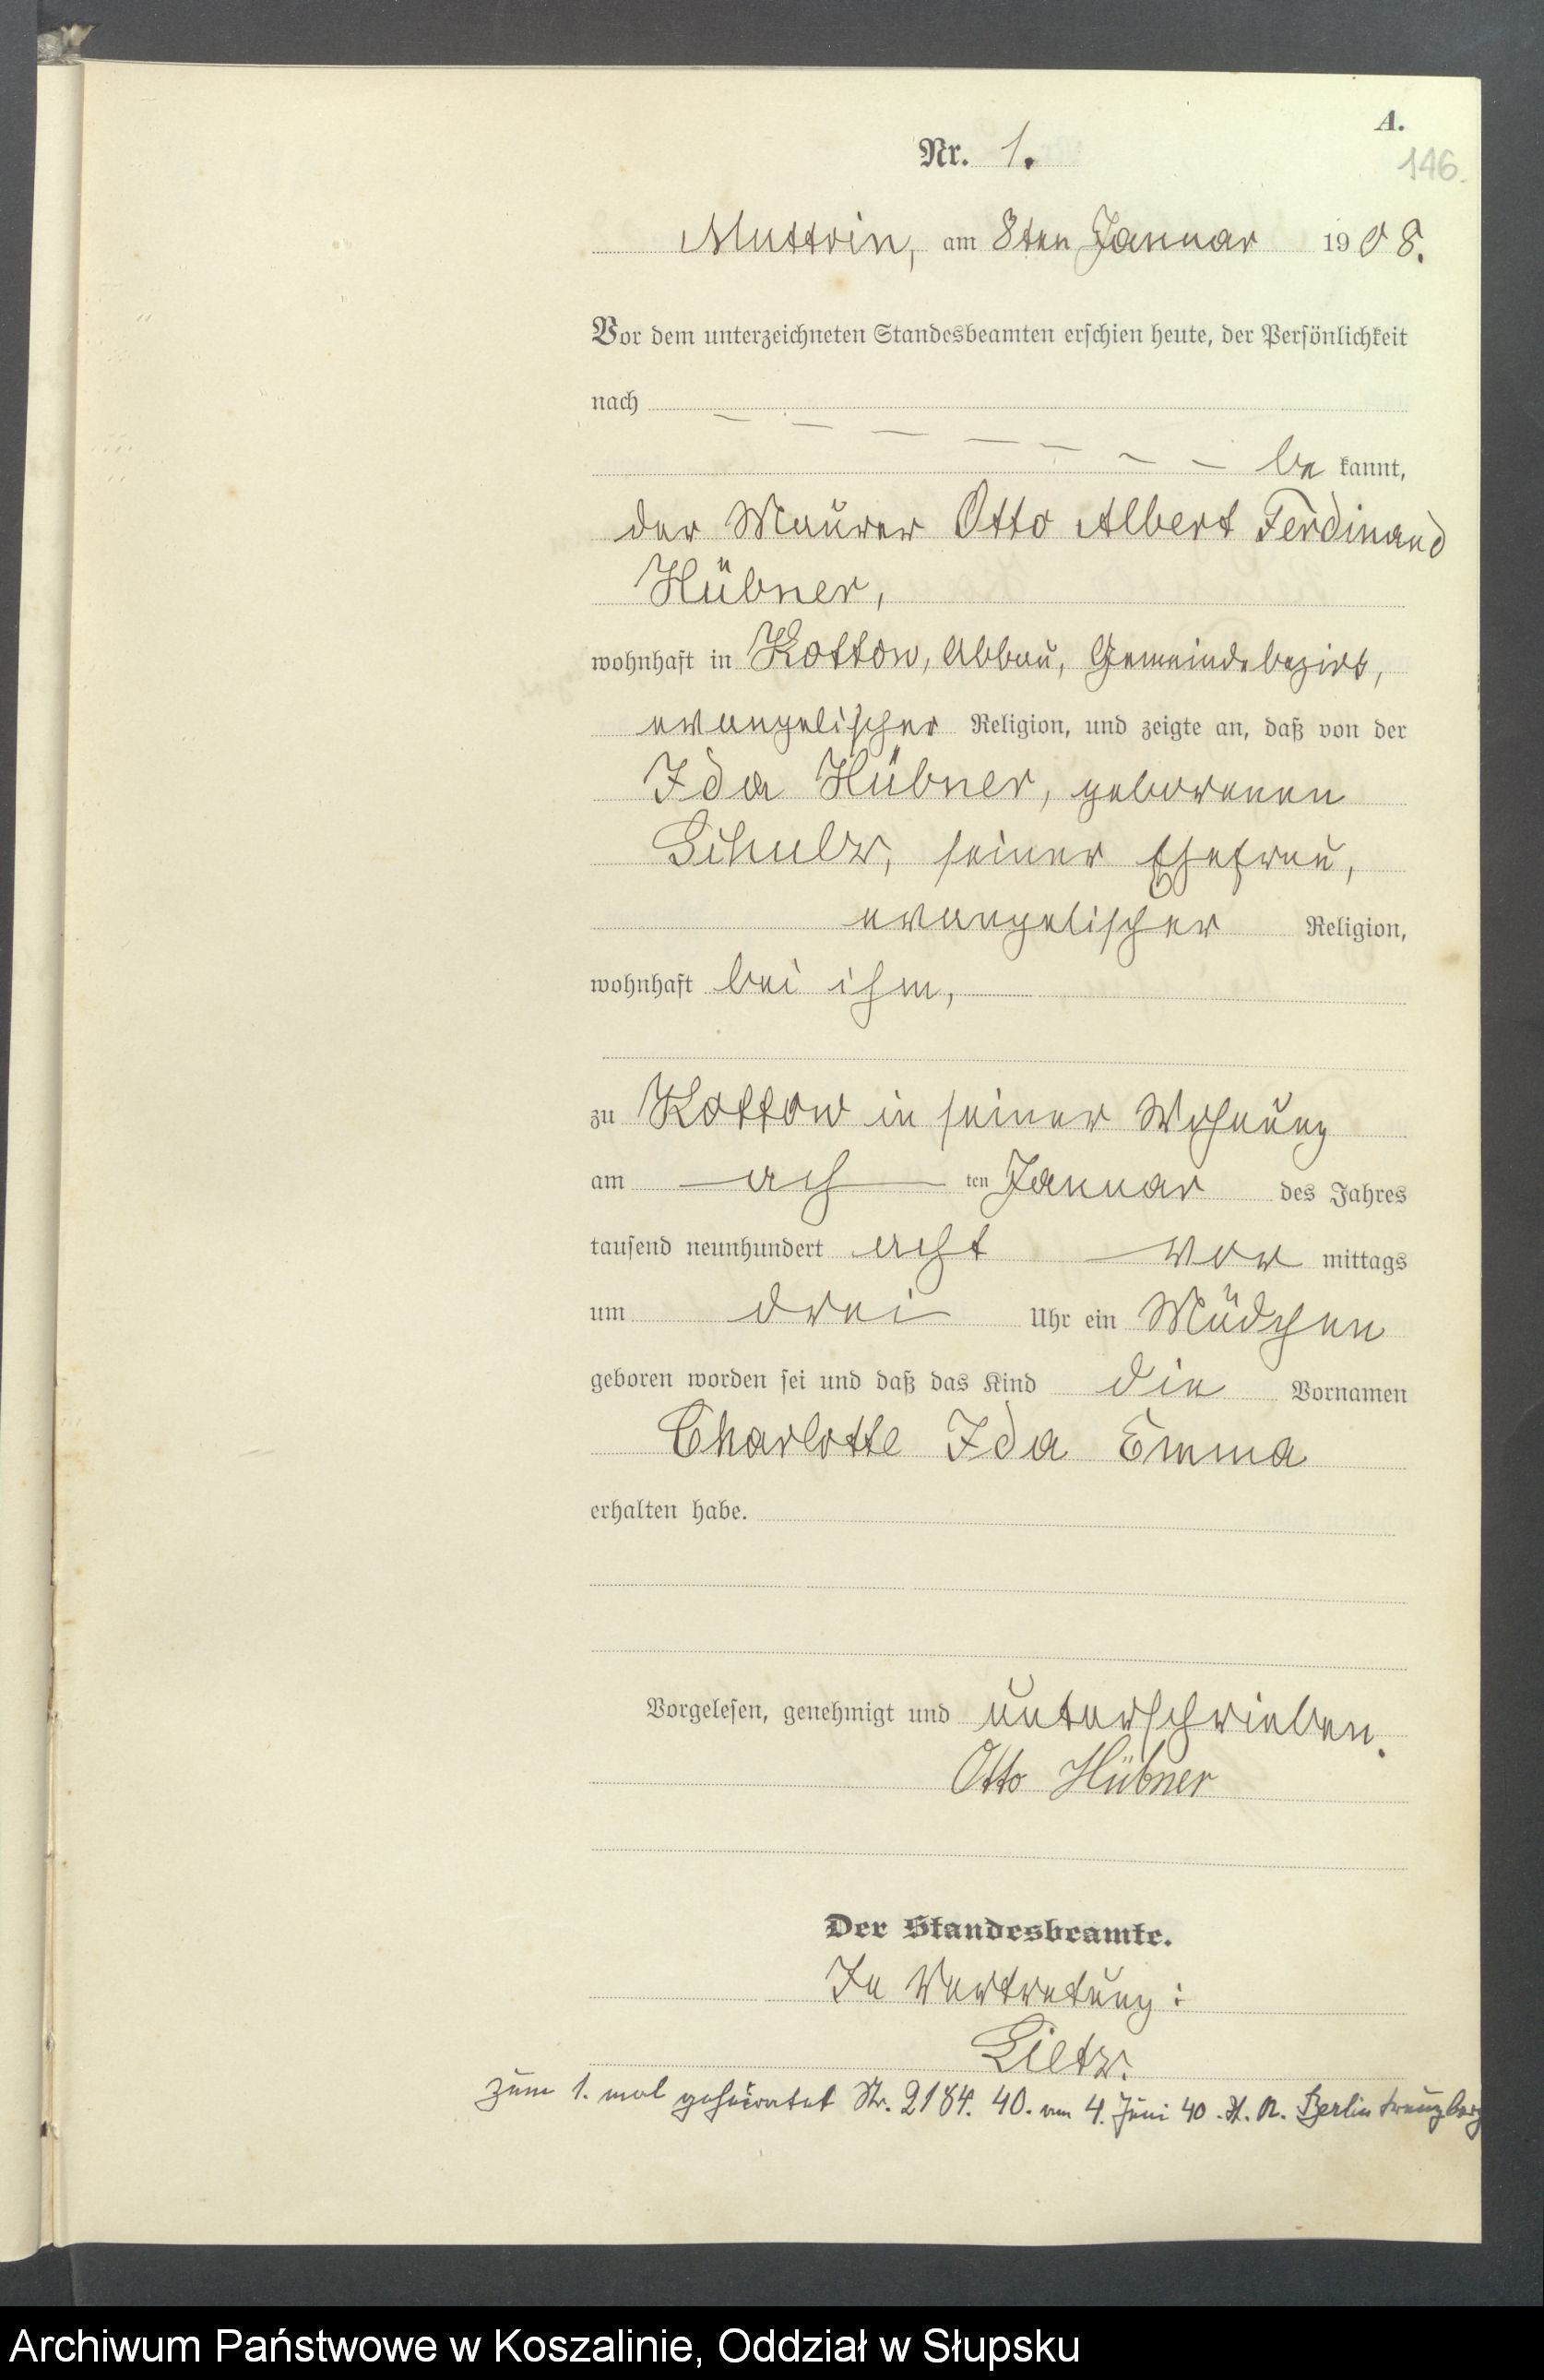 A.
Nr. 1.
146.
Muttrin, am 8ten Januar 1908.
Vor dem unterzeichneten Standesbeamten erschien heute, der Persönlichkeit
nach
— — — — — — — be kannt,
der Maurer Otto Albert Ferdinand
Hübner,
wohnhaft in Kottow, Abbau, Gemeindebezirk,
evangelischer Religion, und zeigte an, daß von der
Ida Hübner, geborenen
Schulz, seiner Ehefrau,
evangelischer Religion,
wohnhaft bei ihm,
zu Kottow in seiner Wohnung
am ach ten Januar des Jahres
tausend neunhundert acht vor mittags
um drei Uhr ein Mädchen
geboren worden sei und daß das Kind die Vornamen
Charlotte Ida Emma
erhalten habe.
Vorgelesen, genehmigt und unterschrieben.
Otto Hübner
Der Standesbeamte.
In Vertretung:
Lietz.
zum 1. mal geheiratet Nr. 2184. 40. am 4. Juni 40. St. A. Berlin Kreuzberg
Archiwum Państwowe w Koszalinie, Oddział w Słupsku